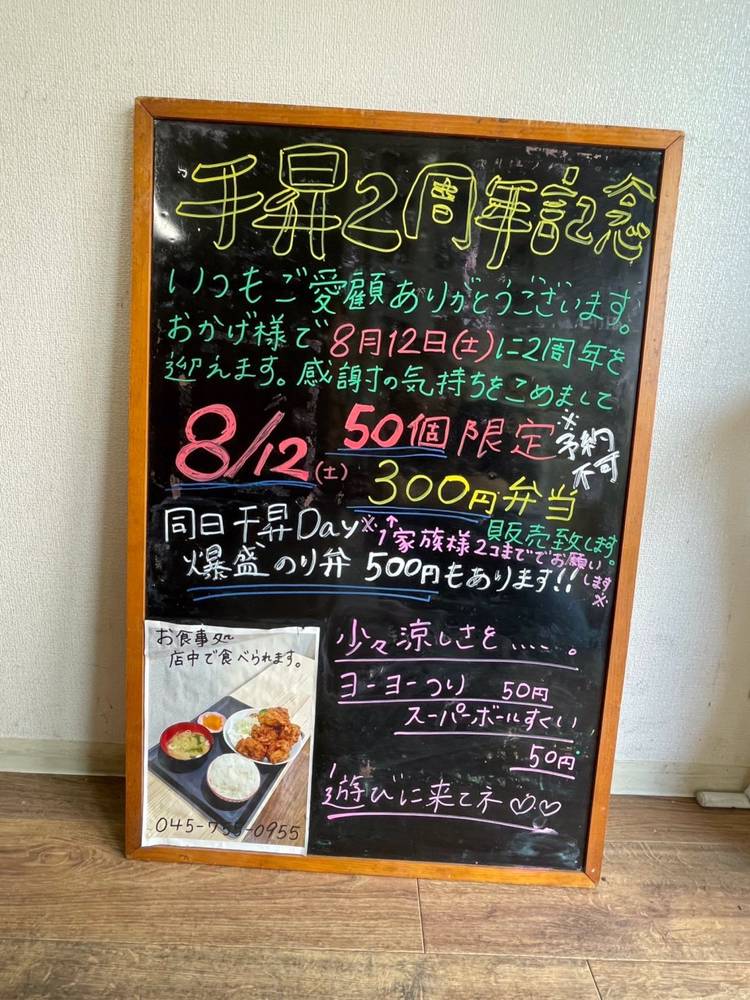 千昇2周年記念
いつもご愛顧ありがとうございます。
おかげ様で8月12日(土)に2周年を
迎えます。感謝の気持ちをこめまして
8/12(土) 50個限定 ※予約不可
300円弁当
販売致します。
同日千昇Day ※↑1家族様2コまででお願いします※
爆盛のり弁 500円もあります!!
お食事処
店中で食べられます。
045-755-0955
少々涼しさを……。
ヨーヨーつり 50円
スーパーボールすくい
50円
遊びに来てネ♡♡